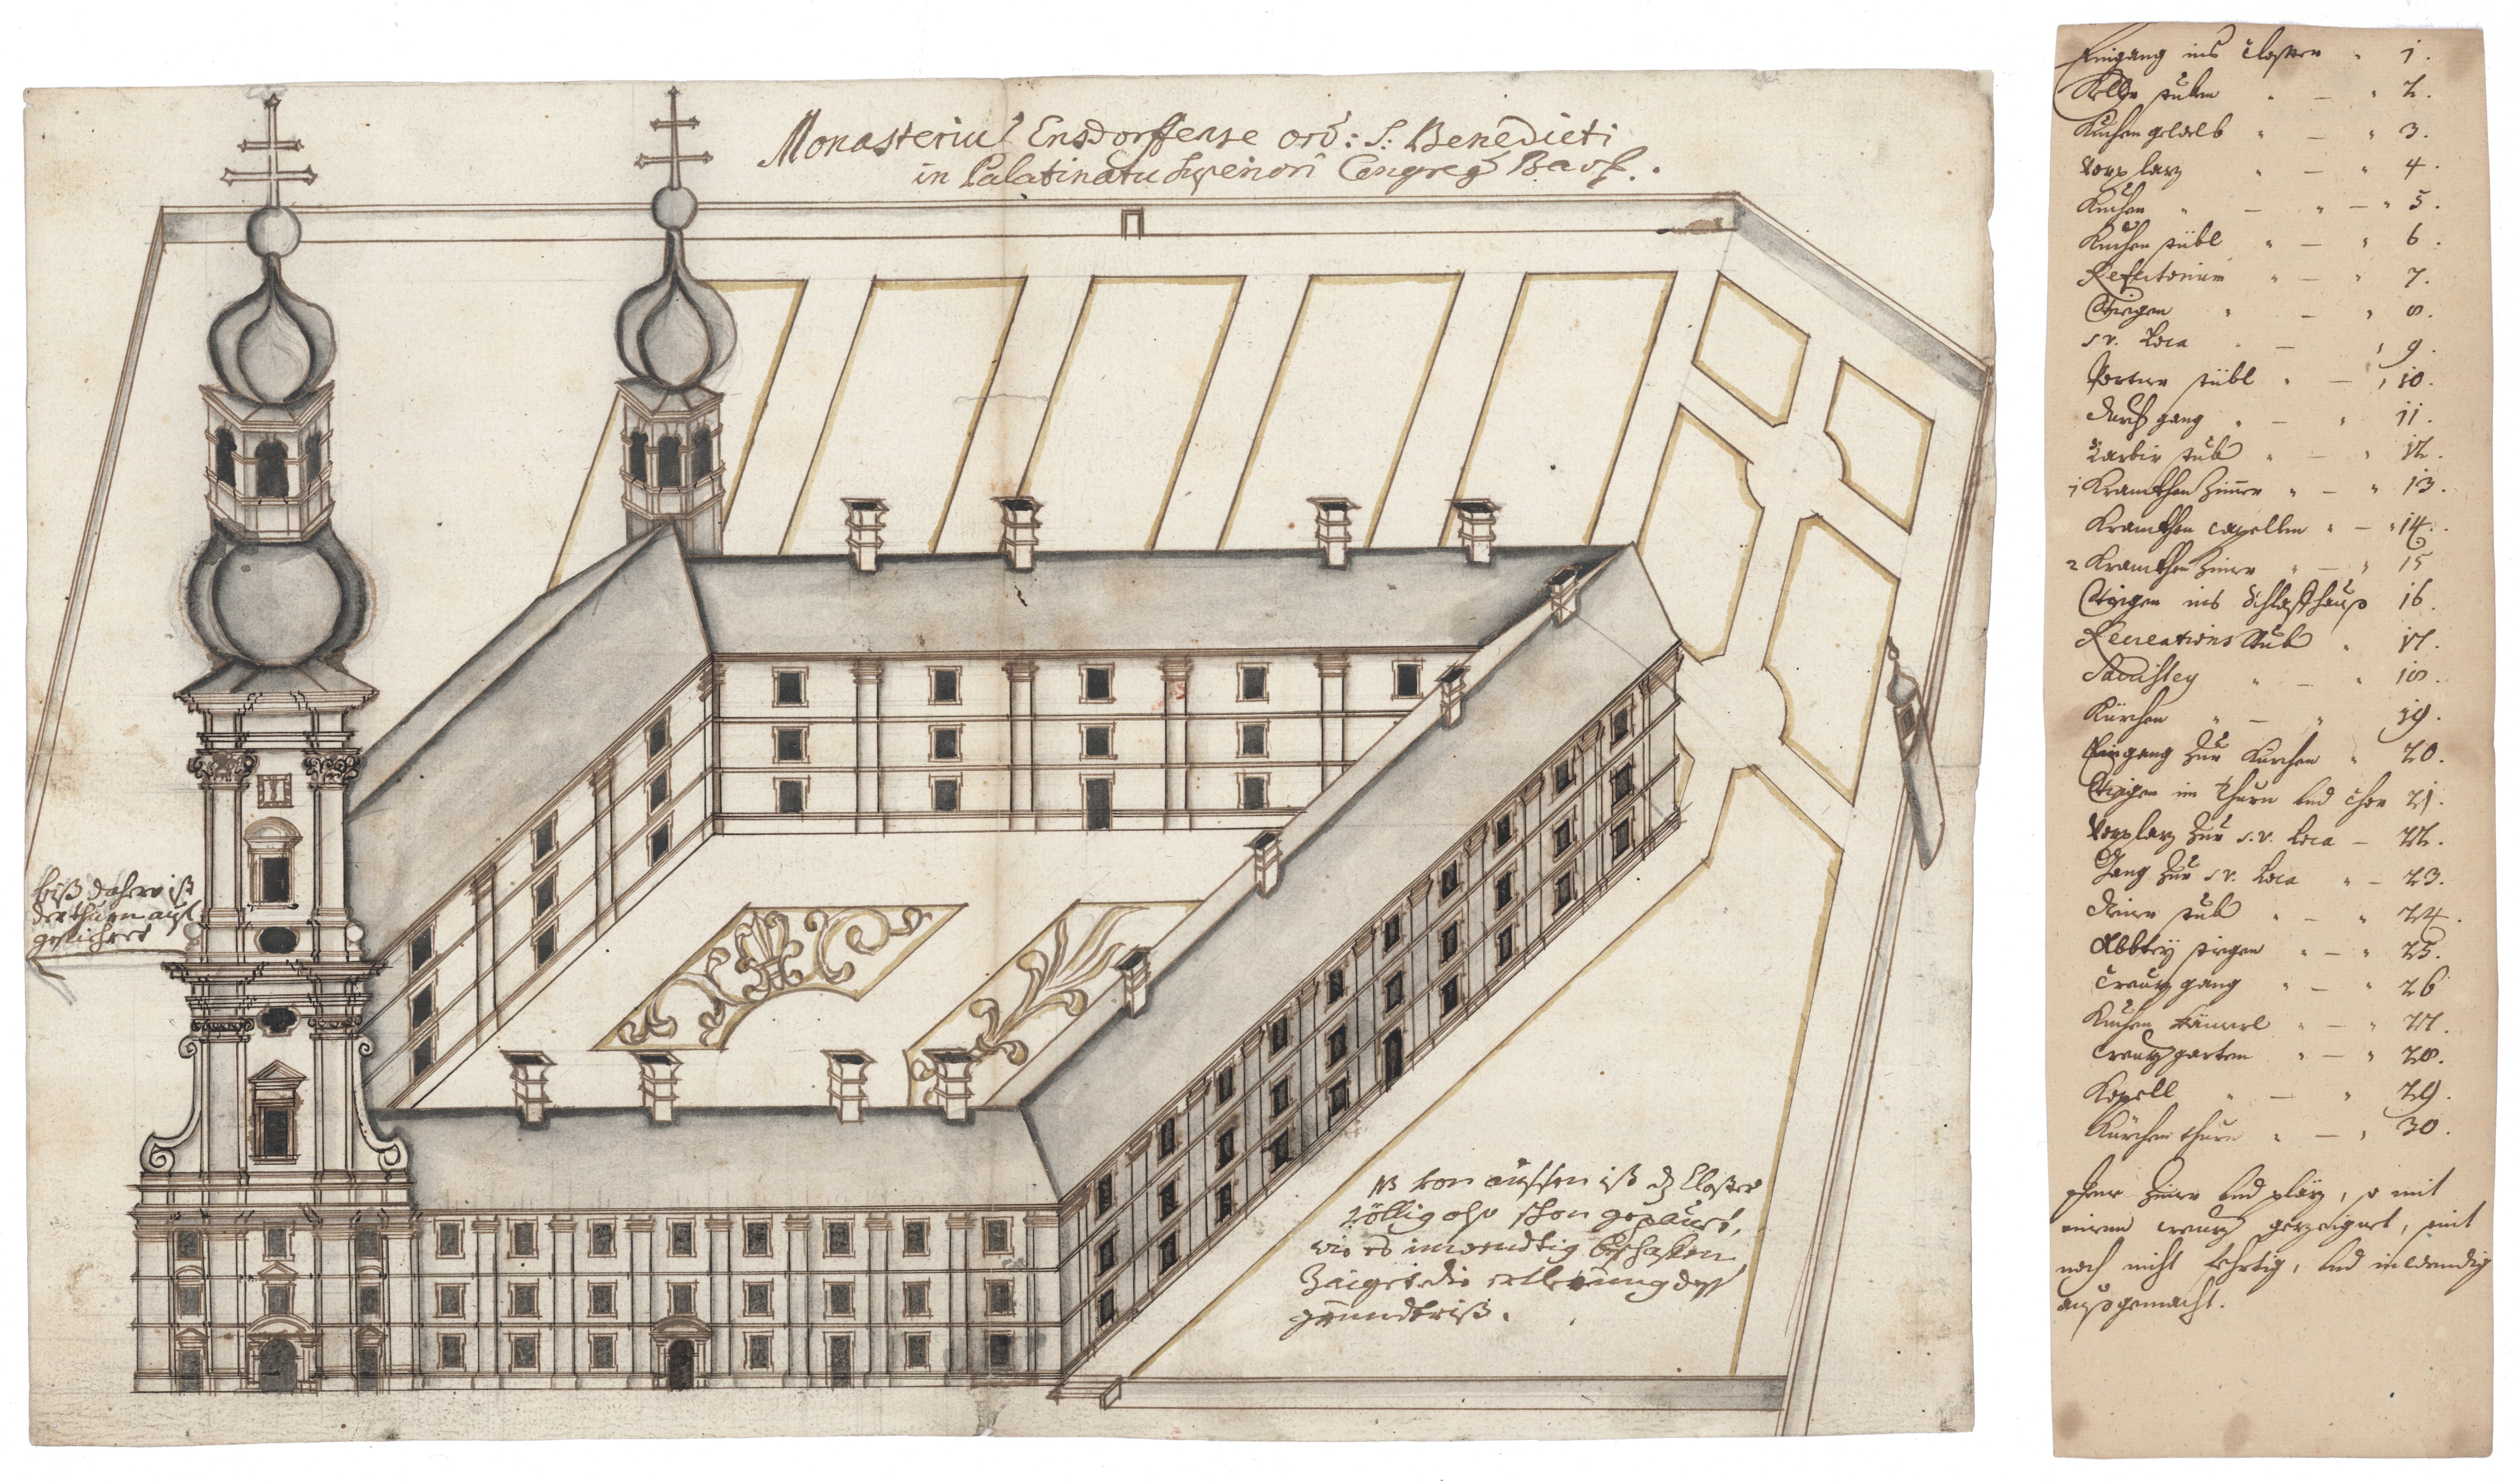 Monasteriu͂ Ensdorffense ord: S: Benedicti
in Palatinatu Superiori Congreg Bav.
biß dahero ist
der thurn auf
gefiehret
NB von aussen ist dz Closter
völlig also schon gepauet,
wie es inwendtig beschaffen
Zaiget die erklerung dess
grundtriß.
Eingang ins Closter 1.
stuben 2.
Kuchen gwelb 3.
Vorplaz 4
Kuchen 5.
Kuchen stübl 6
Refectorium 7.
Stiegen 8.
s.v. Loca 9.
Portner stübl 10.
Durchgang 11.
Barbier stub 12.
1 Krankhen Zimer 13.
Krankhen capellen 14.
2 Krankhen Zimer 15
Stiegen ins Schlaffhauß 16.
Recreations Stub 17.
Sacristey 18.
Kürchen 19.
Eingang zur Kürchen 20.
Stiegen im thurn vnd Chor 21.
Vorplaz zur s.v. Loca 22.
Gang zur s.v. Loca 23.
stub 24.
Abbtey stiegen 25.
Creuzgang 26
Kuchen 27.
Creuzgarten 28.
Kapell 29.
Kürchen thurn 30.
Zimer vnd pläz, so mit
einem creuz gezeignet, seint
noch nicht ferttig, vnd inwendig
außgemacht.